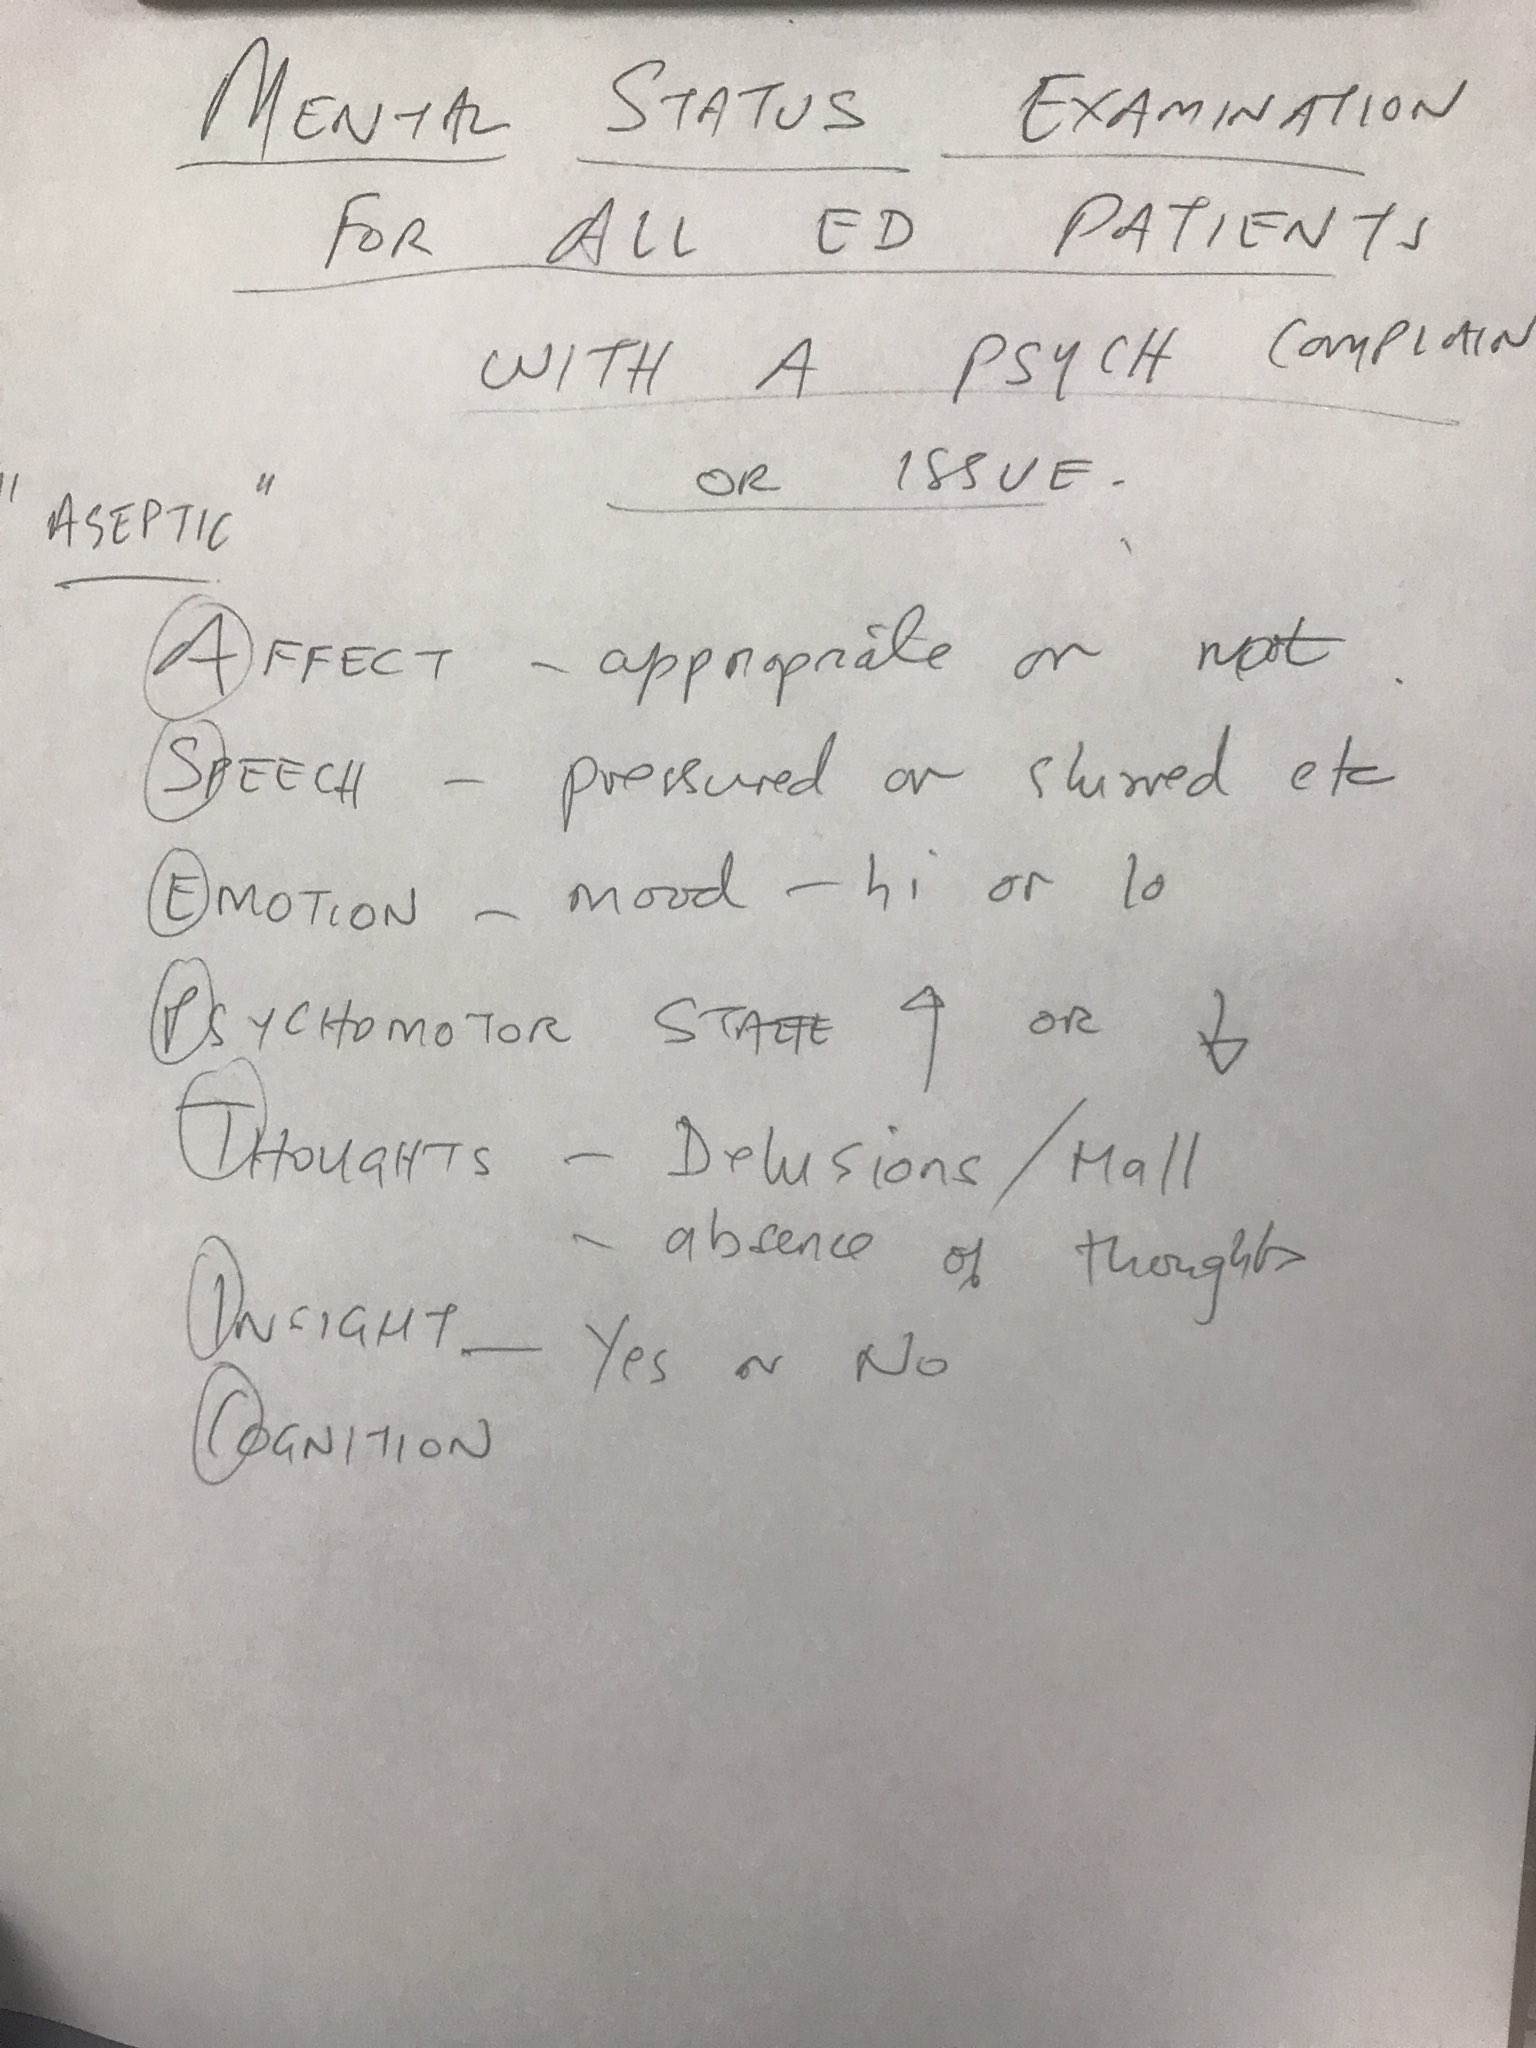 MENTAL STATUS EXAMINATION
FOR ALL ED PATIENTS
WITH A PSYCH COMPLAIN
OR ISSUE.
"ASEPTIC"
AFFECT - appropriate or not.
SPEECH - pressured or slurred etc
EMOTION - mood - hi or lo
PSYCHOMOTOR STATE ↑ OR ↓
THOUGHTS - Delusions / Hall
- absence of thoughts
INSIGHT - Yes or No
COGNITION